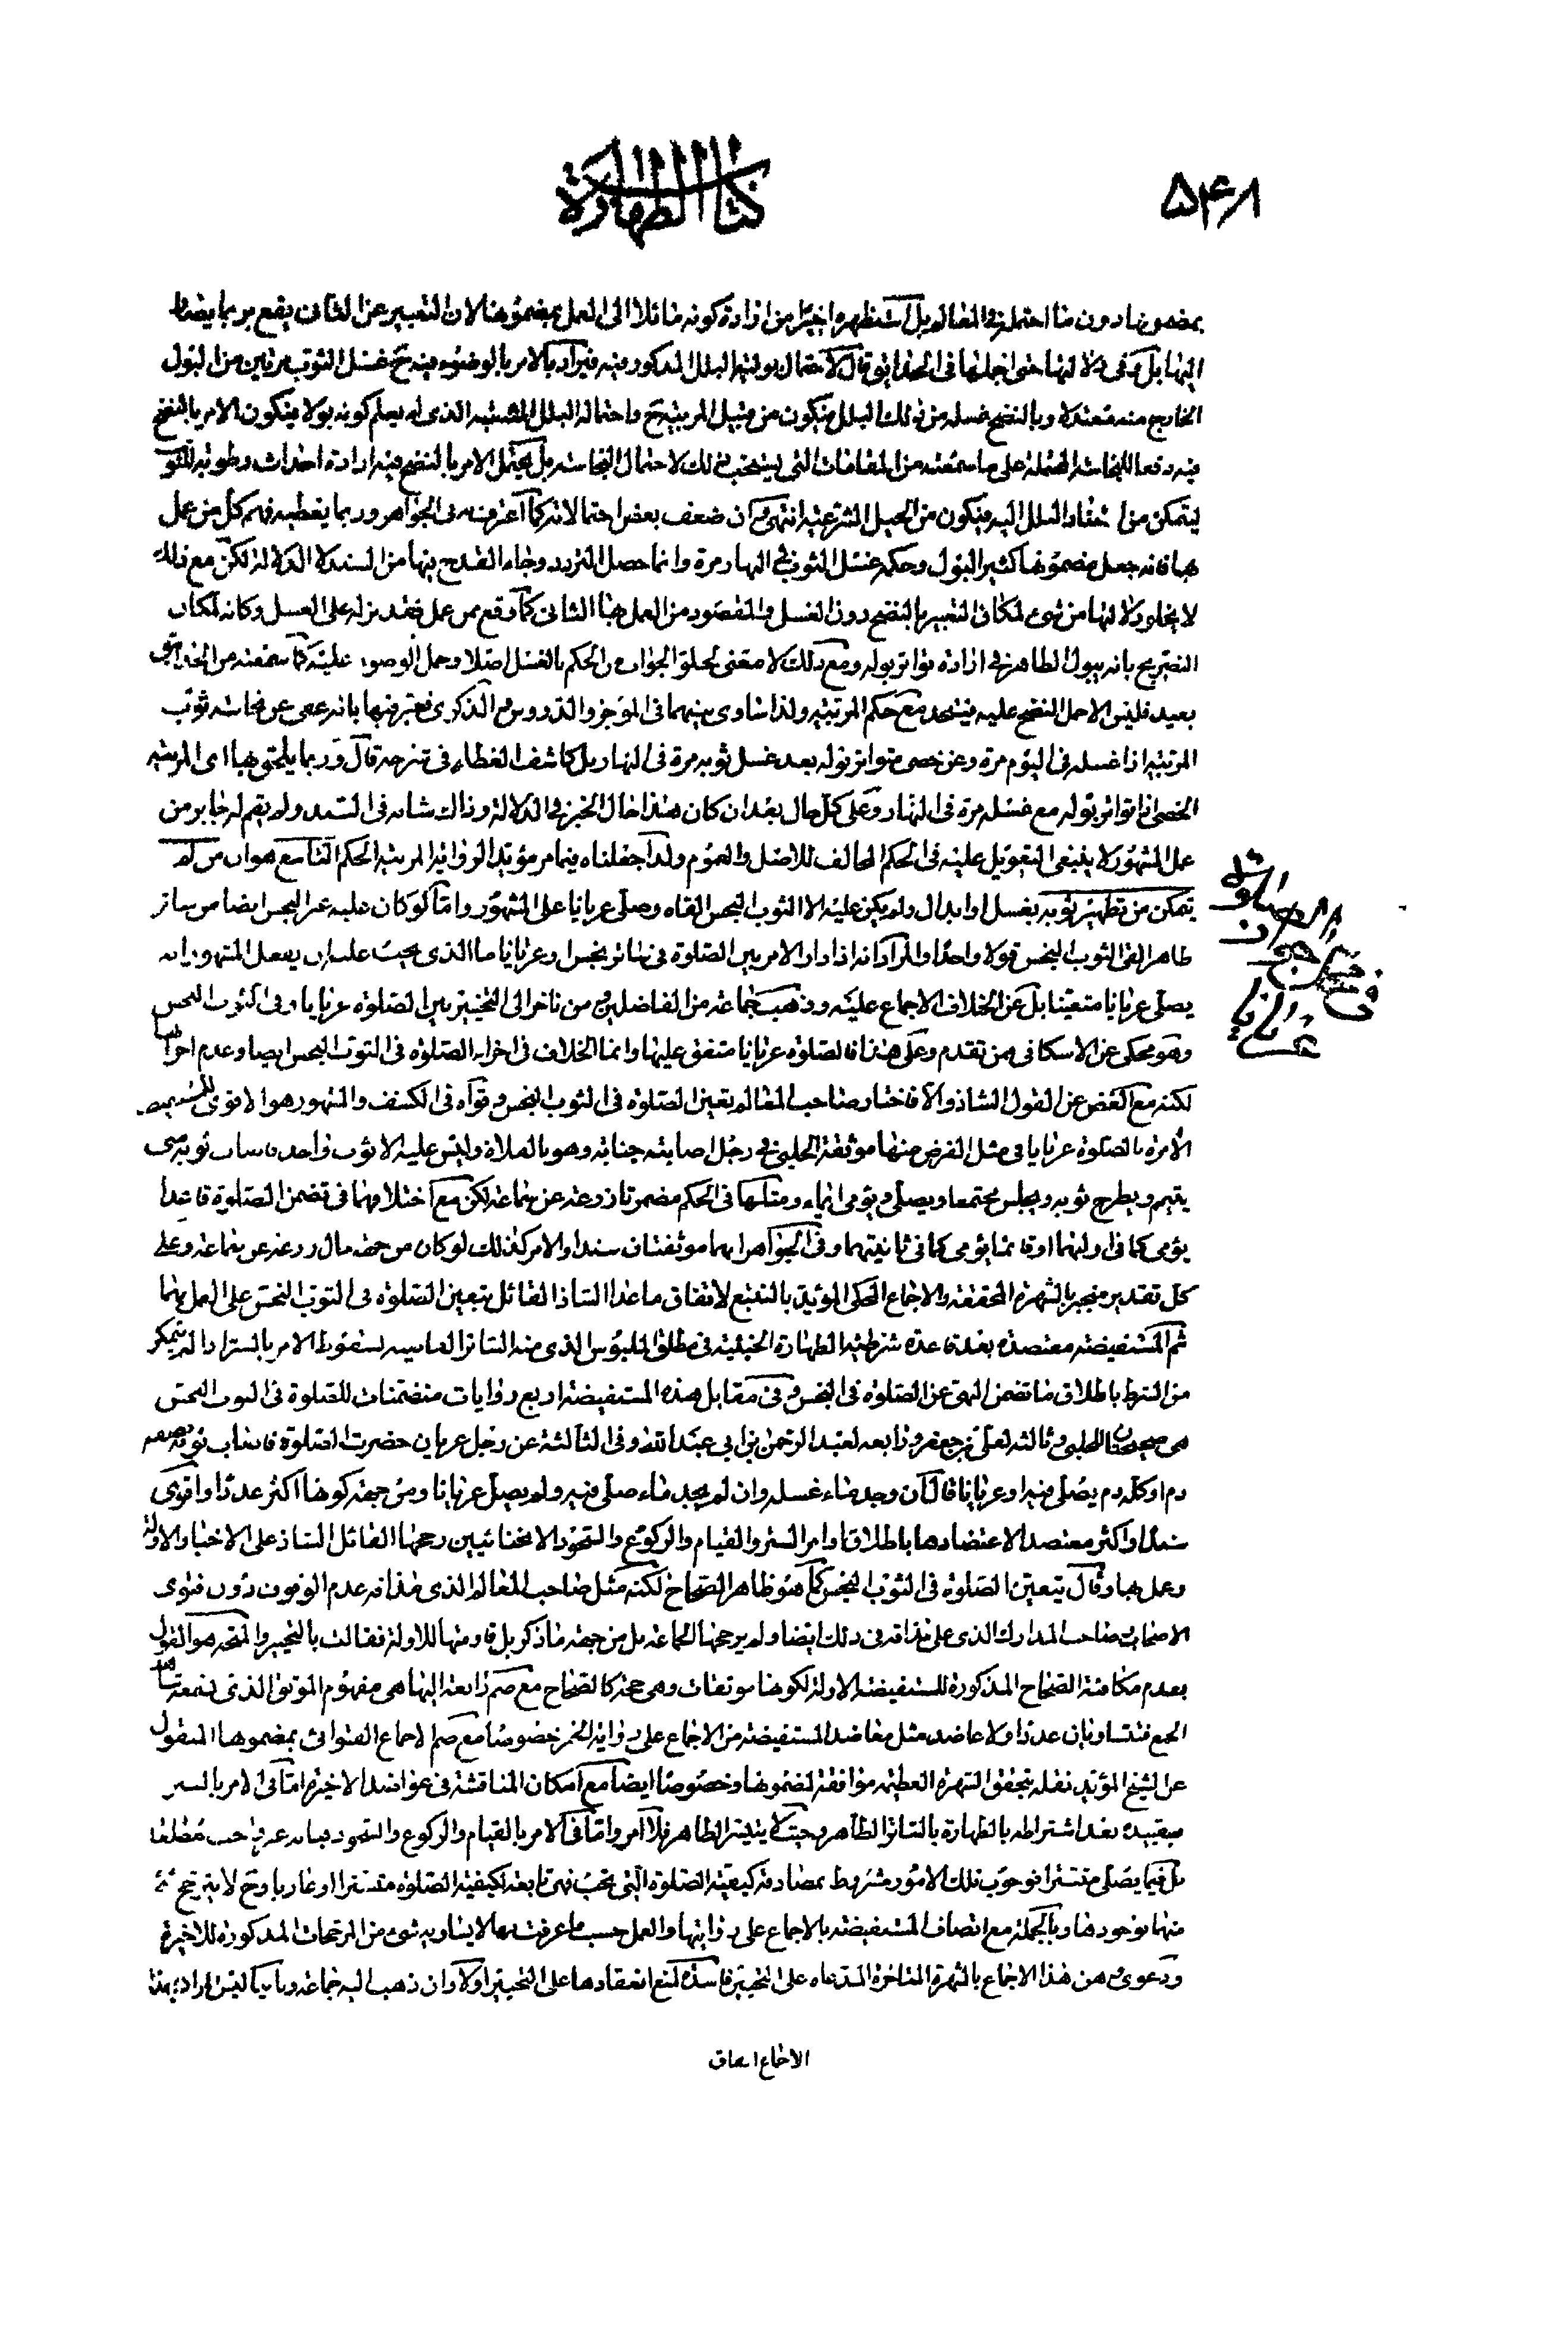 ۵۴۸
كتاب الطهارة
بمضمونها دون ما احتمله في المعالم بل استظهره اخيرا من ارادة كونه مائلا الى العمل بمضمونها لان التعبير عن الثاني يقع بربما يضاف
اليها بل وفي دلالتها حتى اجلها في الحدائق قال لاحتمال بولية البلل المذكور فيه فيراد بالامر بالوضوء فيه ح غسل الثوب مرتين من البول
الخارج منه معتدلا وبالنضح غسله من ذلك البلل فيكون من قبيل المربية ح واحتمال البلل المشتبه الذي لم يعلم كونه بولا فيكون الامر بالنضح
فيه دفعا للنجاسة المحتملة على ما سمعته من المقامات التي يستحب فيها ذلك لاحتمال النجاسة بل يحتمل الامر بالنضح فيه ارادة احداث رطوبة للثوب
ليتمكن من استناد البلل اليه فيكون من الحيل الشرعية انتهى وان ضعف بعض احتمالاته كما اعترف به في الجواهر وربما يعطيه فهم كل من عمل
بها فانه جعل مضمونها كثير البول وحكمه غسل الثوب في النهار مرة وانما حصل التردد وجاء القدح فيها من السند لا الدلالة لكن مع ذلك
لا يخلو دلالتها من شيء لمكان التعبير بالنضح دون الغسل والمقصود من العمل بها الثاني كما وقع ممن عمل فقد نزله على الغسل وكانه لمكان
التصريح بانه يبول الظاهر في ارادة تواتر بوله ومع ذلك لا معنى لخلو الجواب عن الحكم بالغسل اصلا وحمل الوضوء عليه كما سمعته من الحدائق
بعيد فليس الا حمل النضح عليه فيتحد مع حكم المربية ولذا ساوى بينهما في الموجز والدروس والذكرى فعبر فيها بانه عفي عن نجاسة ثوب
المربية اذا غسله في اليوم مرة وعن خصي متواتر بوله بعد غسل ثوبه مرة في النهار بل كاشف الغطاء في شرحه قال وربما يلحق بها اى المربية
الخصي اذا تواتر بوله مع غسله مرة في النهار وعلى كل حال بعد ان كان هذا حال الخبر في الدلالة وذاك شانه في السند ولم يقم له جابر من
عمل المشهور لا ينبغي التعويل عليه في الحكم المخالف للاصل والعموم ولذا جعلناه فيما مر مؤيدا لرواية المربية الحكم التاسع هو ان من لم
يتمكن من تطهير ثوبه بغسل او ابدال ولم يكن عليه الا الثوب النجس القاه وصلى عريانا على المشهور واما لو كان عليه غير النجس ايضا من ساتر
طاهر القى الثوب النجس قولا واحدا والمراد انه اذا دار الامر بين الصلوة في ساتر نجس او عريانا ما الذي يجب عليه ان يفعل المشهور انه
يصلي عريانا متعينا بل عن الخلاف الاجماع عليه وذهب جماعة من الفاضلين ومن تاخر الى التخيير بين الصلوة عريانا وفى الثوب النجس
وهو محكي عن الاسكافي ممن تقدم وعلى هذا فالصلوة عريانا متفق عليها وانما الخلاف في اجزاء الصلوة في الثوب النجس ايضا وعدم اجزائها
لكنه مع الغض عن القول الشاذ والا فاختار صاحب المعالم تعين الصلوة في الثوب النجس وقواه في الكشف والمشهور هو الاقوى للمستفيضة
الآمرة بالصلوة عريانا في مثل الفرض منها موثقة الحلبي في رجل اصابته جنابة وهو بالفلاة وليس عليه الا ثوب واحد فاصاب ثوبه مني
يتيمم ويطرح ثوبه ويجلس مجتمعا ويصلي ويؤمي ايماء ومثلها في الحكم مضمرتا زرعة عن سماعة لكن مع اختلافهما في تضمن الصلوة قاعدا
يؤمي كما في اولهما او قائما يؤمي كما في ثانيتهما وفي الجواهر انهما موثقتان سندا والامر كذلك لو كان من جهة مال زرعة عن سماعة وعلى
كل تقدير منجبر بالشهرة المحققة والاجماع المحكى المؤيد بالتتبع لاتفاق ما عدا الشاذ القائل بتعين الصلوة فى الثوب النجس على العمل بهما
ثم المستفيضة معتضدة بعد قاعدة شرطية الطهارة الخبثية في مطلق الملبوس الذي منه الساتر القاضية بسقوط الامر بالستر اذا لم يتمكن
من الشرط باطلاق ما تضمن النهي عن الصلوة فى النجس وفي مقابل هذه المستفيضة اربع روايات متضمنات للصلوة فى الثوب النجس
هى صحيحتان للحلبي وثالثة لعلي بن جعفر ورابعة لعبد الرحمن بن ابي عبد الله وفى الثالثة عن رجل عريان حضرت الصلوة فاصاب ثوبا نصفه
دم او كله دم يصلي فيه او عريانا قال ان وجد ماء غسله وان لم يجد ماء صلى فيه ولم يصل عريانا ومن جهة كونها اكثر عددا واقوى
سندا واكثر معتضدا لاعتضادها باطلاق اوامر الستر والقيام والركوع والسجود لا منحنائيين رجحها القائل الشاذ على الاخبار الاولة
وعمل بها وقال بتعين الصلوة في الثوب النجس كما هو ظاهر الصحاح لكنه مثل صاحب المعالم الذي مذاقه عدم الوقوف دون فتوى
الاصحاب وصاحب المدارك الذى على مذاقه في ذلك ايضا ولم يرجحها الجماعة بل من جهة ما ذكر بل قاومتها للاولة فقالت بالتخيير والمتجه هو القول
بعدم مكافئة الصحاح المذكورة للمستفيضة الاولة لكونها موثقات وهي حجة كالصحاح مع ضم رابعة اليها هي مفهوم المروي الذي سمعته
الجمع فتتساويان عددا ولا عاضد مثل معاضد المستفيضة من الاجماع على رواية الخبر خصوصا مع ضم الاجماع الفتوائي بمضمونها المنقول
عن الشيخ المؤيد نقله بتحقق الشهرة العظيمة موافقة لمضمونها وخصوصا ايضا مع امكان المناقشة في عواضد الاخيرة اما فى الامر بالستر
فبتقييده بعد اشتراطه بالطهارة بالساتر الطاهر وحيث لا يتيسر الطاهر فلا امر واما فى الامر بالقيام والركوع والسجود فبانه غير واجب مطلقا
بل فيما يصلي متسترا فوجوب تلك الامور مشروط بمصادفة كيفية الصلوة التي تجب فهي تابعة لكيفية الصلوة متسترا او عاريا وح لا يترجح شئ
منها بوجودها وبالجملة مع اتصاف المستفيضة بالاجماع على روايتها والعمل حسب ما عرفت بها لا يساويه شيء من المرجحات المذكورة للاخيرة
ودعوى وهن هذا الاجماع بالشهرة المتاخرة المدعاة على التخيير فاسدة لمنع انعقادها على التخيير اولا وان ذهب اليه جماعة وثانيا ليس المراد بهذا
الاجماع اتفاق